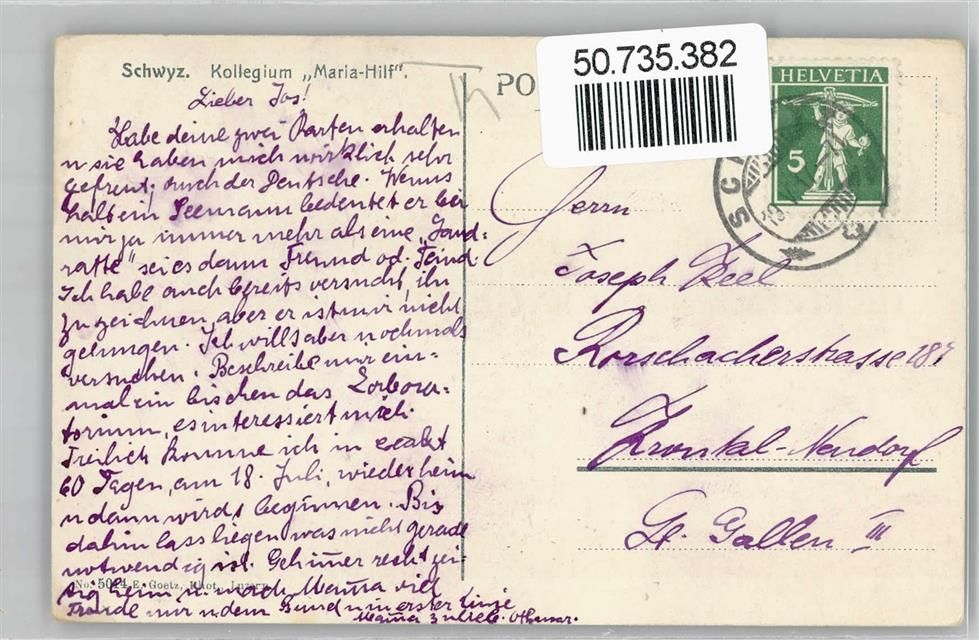 Schwyz. Kollegium „Maria-Hilf".
PO
50.735.382
HELVETIA
5
Lieber Jos!
Habe deine zwei Karten erhalten
u sie haben mich wirklich sehr
gefreut; auch der Deutsche. Wenns
halt ein Seemann bedeutet er bei
mir ja immer mehr als eine „Land-
ratte" sei es dann Freund od. Feind.
Ich habe auch bereits versucht, ihn
zu zeichnen, aber er ist mir nicht
gelungen. Ich will's aber nochmals
versuchen. Beschreibe mir ein-
mal ein bischen das Labora-
torium, es interessiert mich.
Freilich komme ich in exakt
60 Tagen, am 18. Juli, wieder heim
u dann wirds beginnen. Bis
dahin lass liegen was nicht gerade
notwendig ist. Geh immer recht
heim u. mach Mama viel
Freude mir u dem Bund u in erster Linie
Mama zu liebe. Othmar.
No. 5014 E. Goetz, Phot., Luzern
Herrn
Joseph Keel
Rorschacherstrasse
Krontal-Neudorf
St. Gallen III